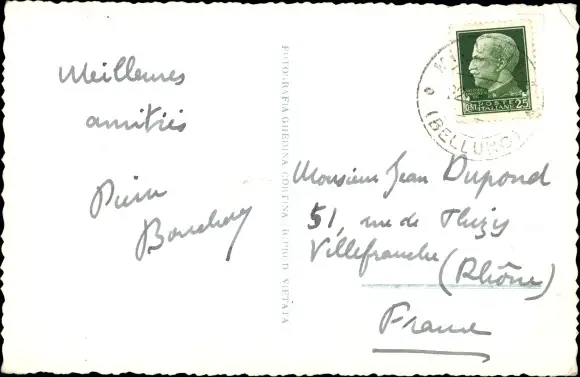 Meilleures
amitiés
Pierre
FOTOGRAFIA GHEDINA CORTINA RIPROD. VIETATA
(BELLUNO)
25
POSTE
ITALIANE
Monsieur Jean Dupond
51, rue de Thizy
Villefranche
(Rhône)
France